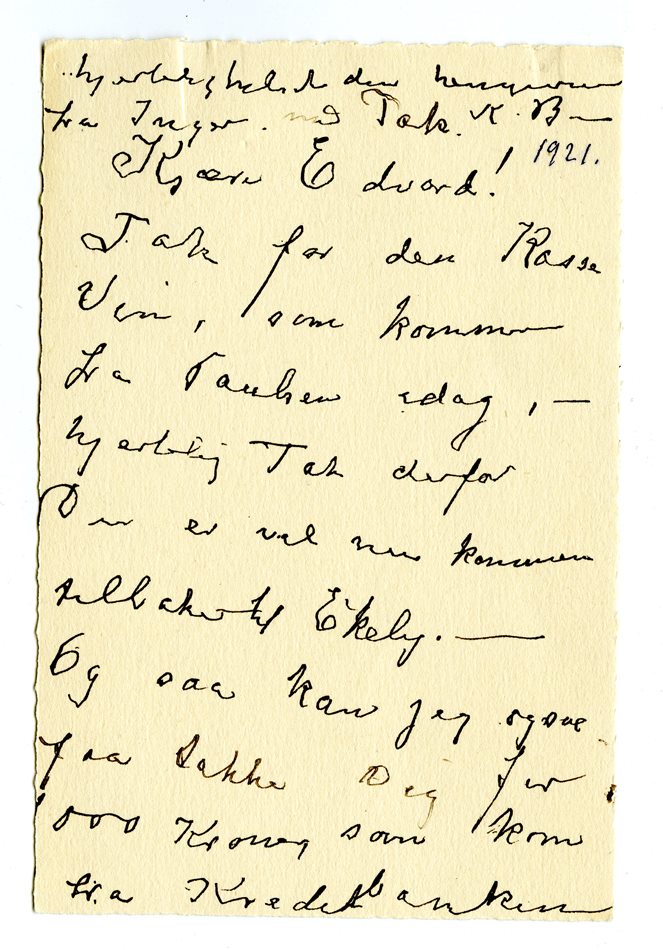 hjerteligheds den
fra Inger. med Tak. K. B—
1921.
Kjære Edvard!
Tak for den Kasse
Vin, som kommer
fra Paulsen idag, —
hjertelig Tak derfor
Du er vel nu kommen
tilbake til Ekely. —
Og saa kan jeg ogsaa
faa takke Dig for
1000 Kroner som kom
fra Kreditbanken